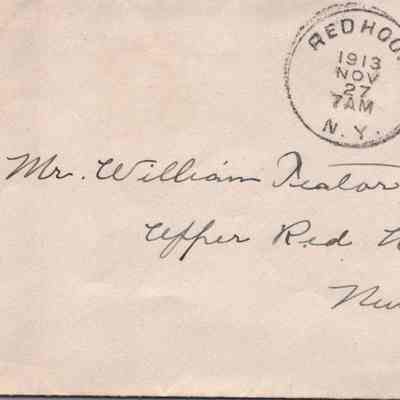 REDHOO
1913
NOV
27
7AM
N.Y.
Mr. William Teator
Upper Red H
New